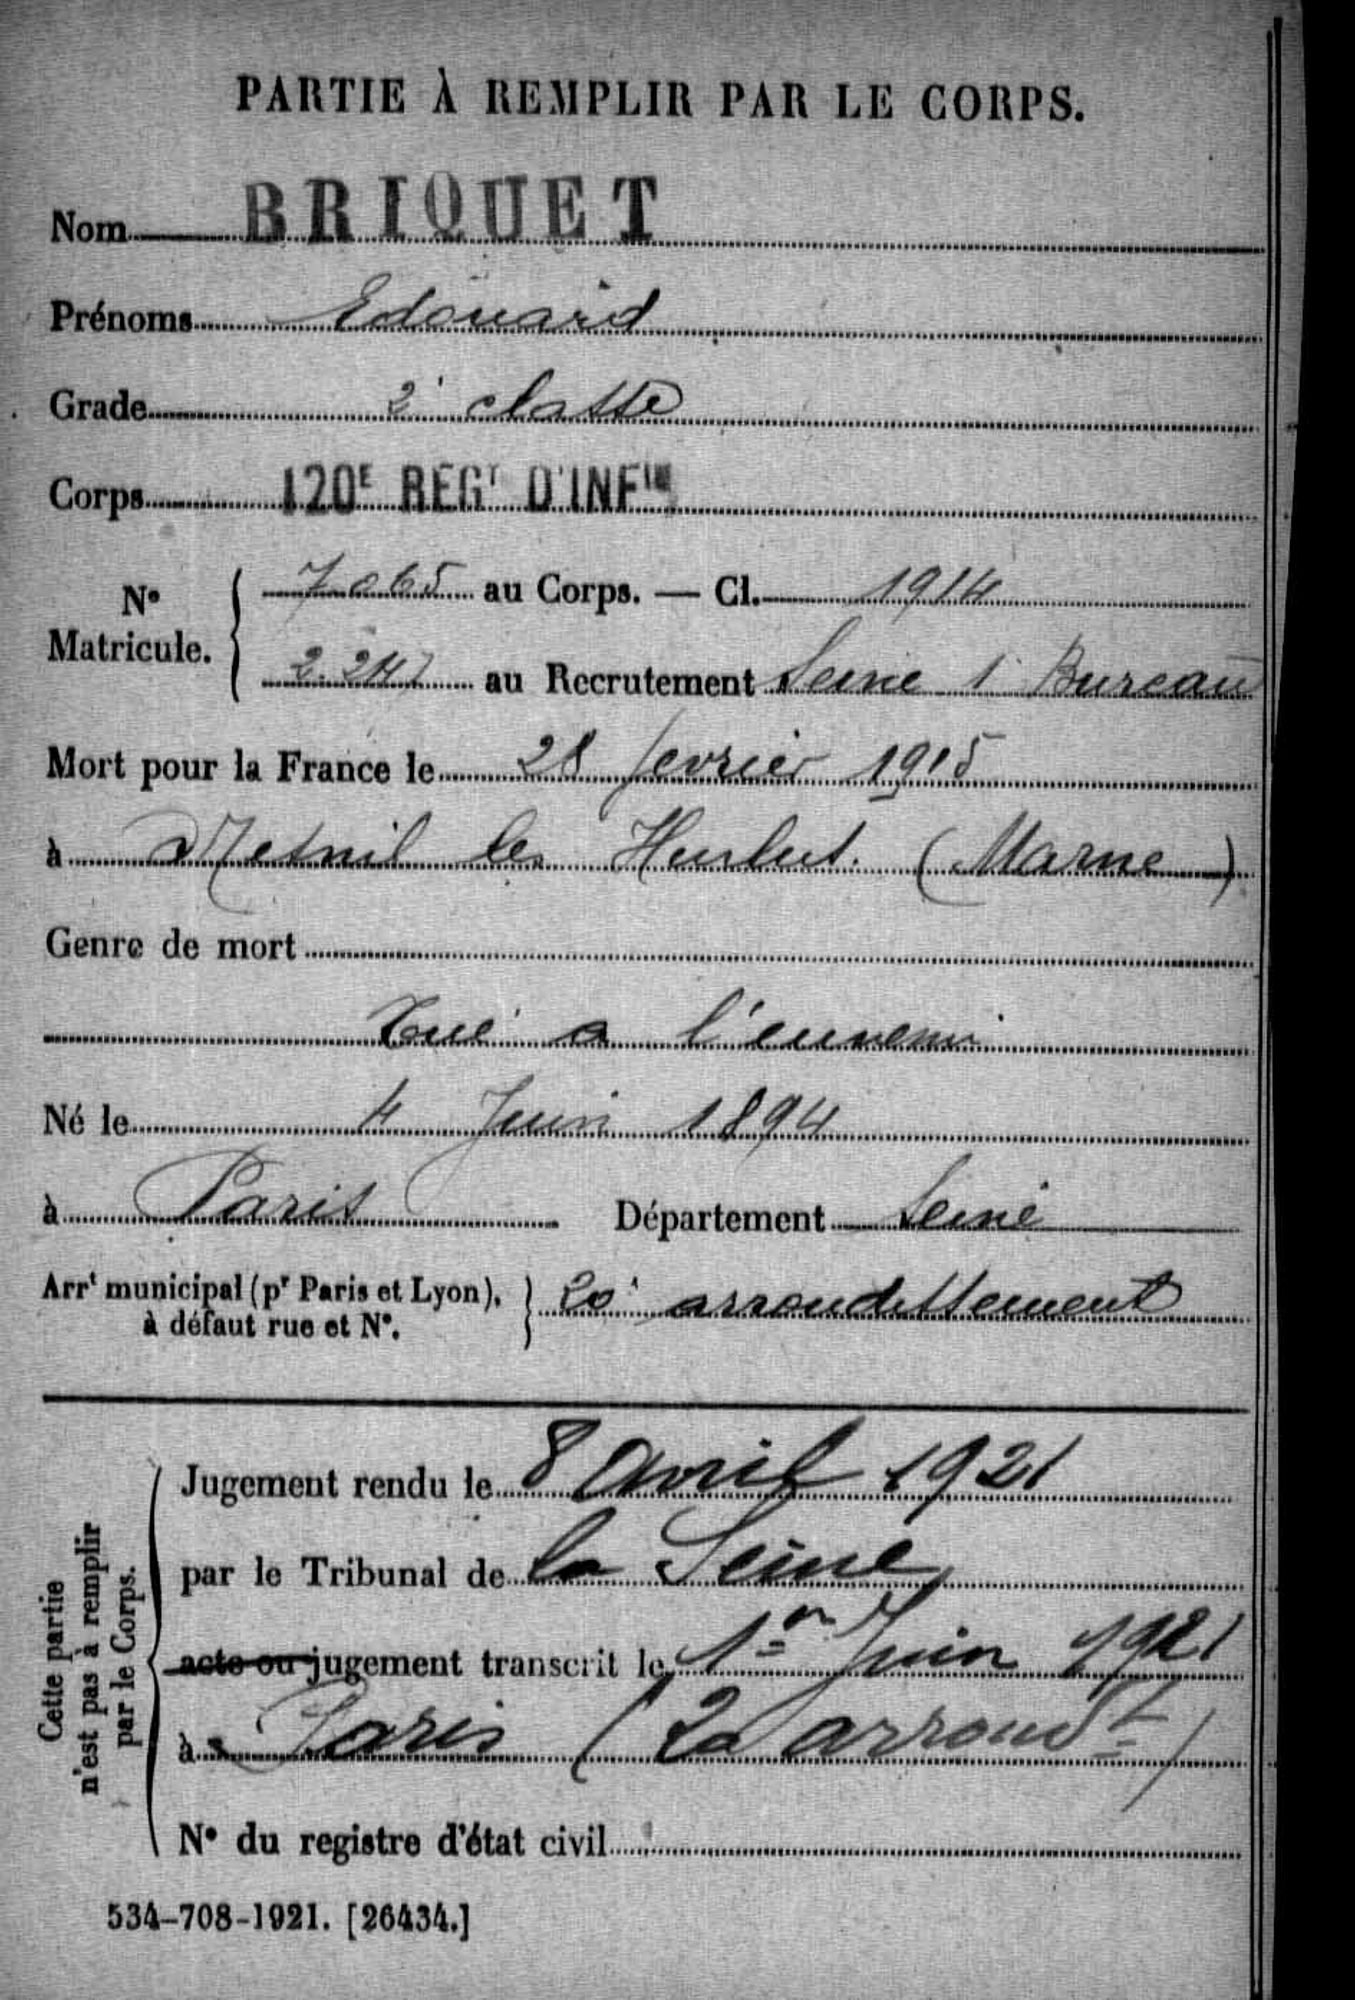 PARTIE À REMPLIR PAR LE CORPS.
Nom BRIQUET
Prénoms Edouard
Grade 2e classe
Corps 120E REGT D'INFIE
No Matricule. 7065 au Corps. — Cl. 1914
2.247 au Recrutement Seine 1 Bureau
Mort pour la France le 28 fevrier 1915
à Mesnil les Hurlut. (Marne)
Genre de mort
Tué a l'ennemi
Né le 4 Juin 1894
à Paris Département Seine
Arrt municipal (pr Paris et Lyon), à défaut rue et No. 20e arrondissement
Cette partie n'est pas à remplir par le Corps.
Jugement rendu le 8 Avril 1921
par le Tribunal de la Seine
acte ou jugement transcrit le 1er Juin 1921
à Paris (20 arrondt)
No du registre d'état civil
534-708-1921. [26434.]